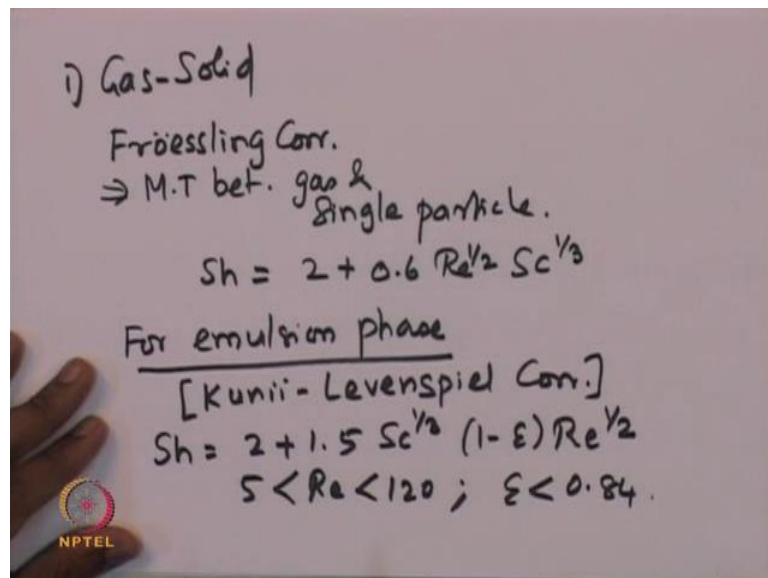 i) Gas-Solid
Fröessling Corr.
⇒ M.T bet. gas &
Single particle.
Sh = 2 + 0.6 Re^1/2 Sc^1/3
For emulsion phase
[Kunii-Levenspiel Corr.]
Sh = 2 + 1.5 Sc^1/3 (1-ε) Re^1/2
5 < Re < 120 ; ε < 0.84.
NPTEL